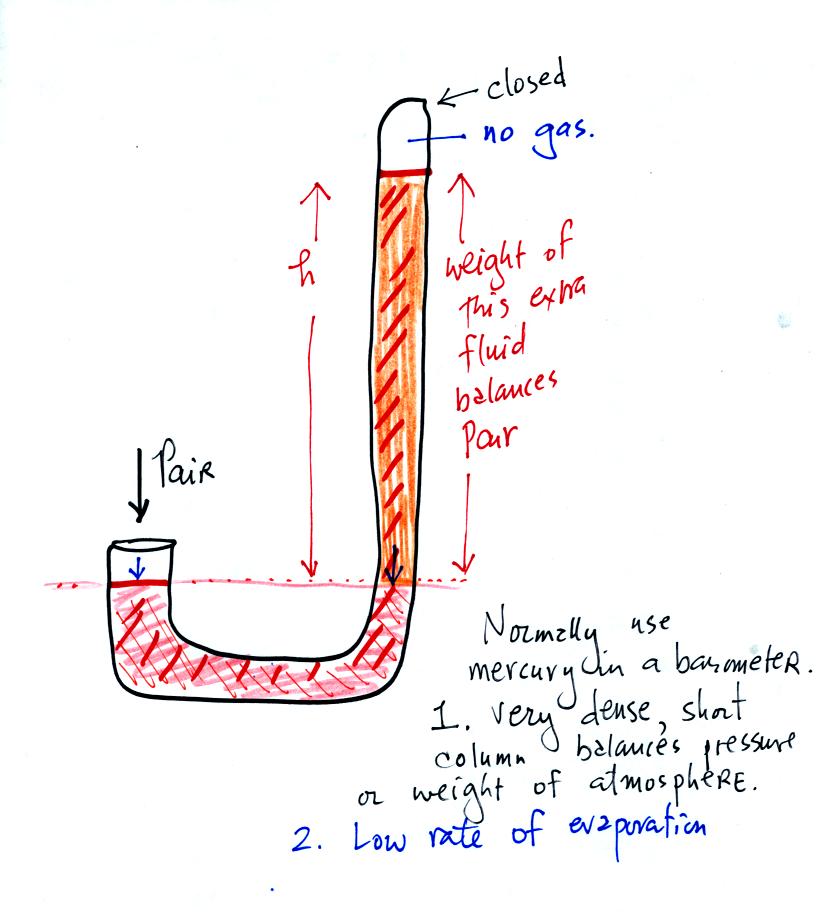 closed
no gas.
h
weight of
this extra
fluid
balances
Pair
Pair
Normally use
mercury in a barometer.
1. very dense, short
column balances pressure
or weight of atmosphere.
2. Low rate of evaporation